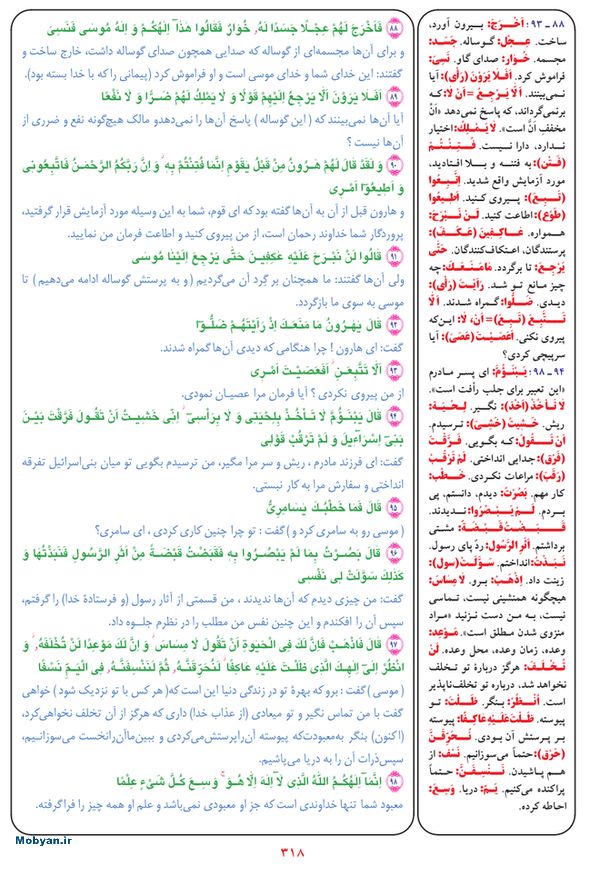 ۸۸ ـ ۹۳ : أَخْرَجَ: بیرون آورد،
ساخت. عِجْل: گوساله. جَسَد:
مجسمه. خُوار: صدای گاو. نَسِیَ:
فراموش کرد. أَفَلا یَرَوْنَ (رَأَی): آیا
نمی‌بینند. أَلّا یَرْجِعُ = أَنْ لا: که
برنمی‌گرداند، که پاسخ نمی‌دهد «أَنْ
مخففِ أَنَّ است». لا یَمْلِکُ: اختیار
ندارد، دارا نیست. فُتِنْتُمْ
(فَتَنَ): به فتنه و بلا افتادید،
مورد آزمایش واقع شدید. اِتَّبِعُوا
(تَبِعَ): پیروی کنید. أَطیعُوا
(طَوَعَ): اطاعت کنید. لَنْ نَبْرَحَ:
همواره. عاکِفینَ (عَکَفَ):
پرستندگان، اعتکاف‌کنندگان. حَتّٰی
یَرْجِعَ: تا برگردد. مامَنَعَکَ: چه
چیز مانع تو شد. رَأَیْتَ (رَأَی):
دیدی. ضَلُّوا: گمراه شدند. أَلّا
تَتَّبِعَ (تَبِعَ) = أَنْ، لا: این‌که
پیروی نکنی. أَفَعَصَیْتَ (عَصَی): آیا
سرپیچی کردی؟
۹۴ ـ ۹۸ : یَبْنَؤُمَّ: ای پسر مادرم
«این تعبیر برای جلب رأفت است».
لا تَأْخُذْ (أَخَذَ): نگیر. لِحْیَة:
ریش. خَشیتُ (خَشِیَ): ترسیدم.
أَنْ تَقُولَ: که بگویی. فَرَّقْتَ
(فَرَقَ): جدایی انداختی. لَمْ تَرْقُبْ
(رَقَبَ): مراعات نکردی. خَطْب:
کار مهم. بَصُرْتُ: دیدم، دانستم، پی
بردم. لَمْ یَبْصُرُوا: ندیدند.
قَبَضْتُ قَبْضَةً: مشتی
برداشتم. أَثَرِ الرَّسُول: ردّ پای رسول.
نَبَذْتُ: انداختم. سَوَّلَتْ (سول):
زینت داد. اِذْهَبْ: برو. لا مِساسَ:
هیچگونه همنشینی نیست، تماسی
نیست، به من دست نزنید «مراد
منزوی شدن مطلق است». مَوْعِد:
وعده، زمان وعده، محل وعده. لَنْ
تُخْلَفَ: هرگز دربارۀ تو تخلف
نخواهد شد، درباره تو تخلف‌ناپذیر
است. اُنْظُرْ: بنگر. ظَلْتَ: تو
پیوسته. ظَلْتَ‌عَلَیْهِ عاکِفًا: پیوسته
بر پرستش آن بودی. نُحَرِّقَنَّ
(حَرَقَ): حتماً می‌سوزانیم. نَسْف: از
هم پاشیدن. نَنْسِفَنَّ: حتماً
پراکنده می‌کنیم. یَمّ: دریا. وَسِعَ:
احاطه کرده.
۸۸ فَاَخْرَجَ لَهُمْ عِجْلًا جَسَدًا لَهُۥ خُوارٌ فَقالُوا هٰذَآ اِلٰهُکُمْ وَ اِلٰهُ مُوسٰی فَنَسِیَ
و برای آن‌ها مجسمه‌ای از گوساله که صدایی همچون صدای گوساله داشت، خارج ساخت و
گفتند: این خدای شما و خدای موسی است و او فراموش کرد (پیمانی را که با خدا بسته بود).
۸۹ اَفَلا یَرَوْنَ اَلّا یَرْجِعُ اِلَیْهِمْ قَوْلًا وَ لا یَمْلِکُ لَهُمْ ضَرًّا وَ لا نَفْعًا
آیا آن‌ها نمی‌بینند که (این گوساله) پاسخ آن‌ها را نمی‌دهدو مالک هیچ‌گونه نفع و ضرری از
آن‌ها نیست ؟
۹۰ وَ لَقَدْ قالَ لَهُمْ هٰرُونُ مِنْ قَبْلُ یٰقَوْمِ اِنَّما فُتِنْتُمْ بِهِ ۖ وَ اِنَّ رَبَّکُمُ الرَّحْمٰنُ فَاتَّبِعُونی
وَ اَطیعُوٓا اَمْری
و هارون قبل از آن به آن‌ها گفته بودکه ای قوم، شما به این وسیله مورد آزمایش قرار گرفتید،
پروردگار شما خداوند رحمان است، از من پیروی کنید و اطاعت فرمان من نمایید.
۹۱ قالُوا لَنْ نَبْرَحَ عَلَیْهِ عٰکِفینَ حَتّٰی یَرْجِعَ اِلَیْنا مُوسٰی
ولی آن‌ها گفتند: ما همچنان بر گِرد آن می‌گردیم ( و به پرستش گوساله ادامه می‌دهیم ) تا
موسی به سوی ما بازگردد.
۹۲ قالَ یٰهٰرُونُ ما مَنَعَکَ اِذْ رَاَیْتَهُمْ ضَلُّوٓا
گفت: ای هارون ! چرا هنگامی که دیدی آن‌ها گمراه شدند.
۹۳ اَلّا تَتَّبِعَنِ ۖ اَفَعَصَیْتَ اَمْری
از من پیروی نکردی ؟ آیا فرمان مرا عصیان نمودی.
۹۴ قالَ یَبْنَؤُمَّ لا تَاْخُذْ بِلِحْیَتی وَ لا بِرَاْسیٓ ۖ اِنّی خَشیتُ اَنْ تَقُولَ فَرَّقْتَ بَیْنَ
بَنیٓ اِسْرآءیلَ وَ لَمْ تَرْقُبْ قَوْلی
گفت: ای فرزند مادرم ، ریش و سر مرا مگیر، من ترسیدم بگویی تو میان بنی‌اسرائیل تفرقه
انداختی و سفارش مرا به کار نبستی.
۹۵ قالَ فَما خَطْبُکَ یٰسامِرِیُّ
( موسی رو به سامری کرد و ) گفت : تو چرا چنین کاری کردی ، ای سامری؟
۹۶ قالَ بَصُرْتُ بِما لَمْ یَبْصُرُوا بِهِ فَقَبَضْتُ قَبْضَةً مِنْ اَثَرِ الرَّسُولِ فَنَبَذْتُها وَ
کَذٰلِکَ سَوَّلَتْ لی نَفْسی
گفت: من چیزی دیدم که آن‌ها ندیدند ، من قسمتی از آثار رسول (و فرستادهٔ خدا) را گرفتم،
سپس آن را افکندم و این چنین نفس من مطلب را در نظرم جلوه داد.
۹۷ قالَ فَاذْهَبْ فَاِنَّ لَکَ فِی الْحَیٰوةِ اَنْ تَقُولَ لا مِساسَ ۖ وَ اِنَّ لَکَ مَوْعِدًا لَنْ تُخْلَفَهُۥ ۖ وَ
انْظُرْ اِلٰیٓ اِلٰهِکَ الَّذی ظَلْتَ عَلَیْهِ عاکِفًا لَنُحَرِّقَنَّهُۥ ثُمَّ لَنَنْسِفَنَّهُۥ فِی الْیَمِّ نَسْفًا
( موسی ) گفت : برو که بهرهٔ تو در زندگی دنیا این است که( هر کس با تو نزدیک شود ) خواهی
گفت با من تماس نگیر و تو میعادی (از عذاب خدا) داری که هرگز از آن تخلف نخواهی‌کرد،
(اکنون) بنگر به‌معبودت‌که پیوسته آن‌راپرستش‌می‌کردی و ببین‌ماآن‌رانخست می‌سوزانیم،
سپس‌ذرات آن را به دریا می‌پاشیم.
۹۸ اِنَّمآ اِلٰهُکُمُ اللّٰهُ الَّذی لآ اِلٰهَ اِلّا هُوَ ۚ وَسِعَ کُلَّ شَیْءٍ عِلْمًا
معبود شما تنها خداوندی است که جز او معبودی نمی‌باشد و علم او همه چیز را فراگرفته.
Mobyan.ir
۳۱۸